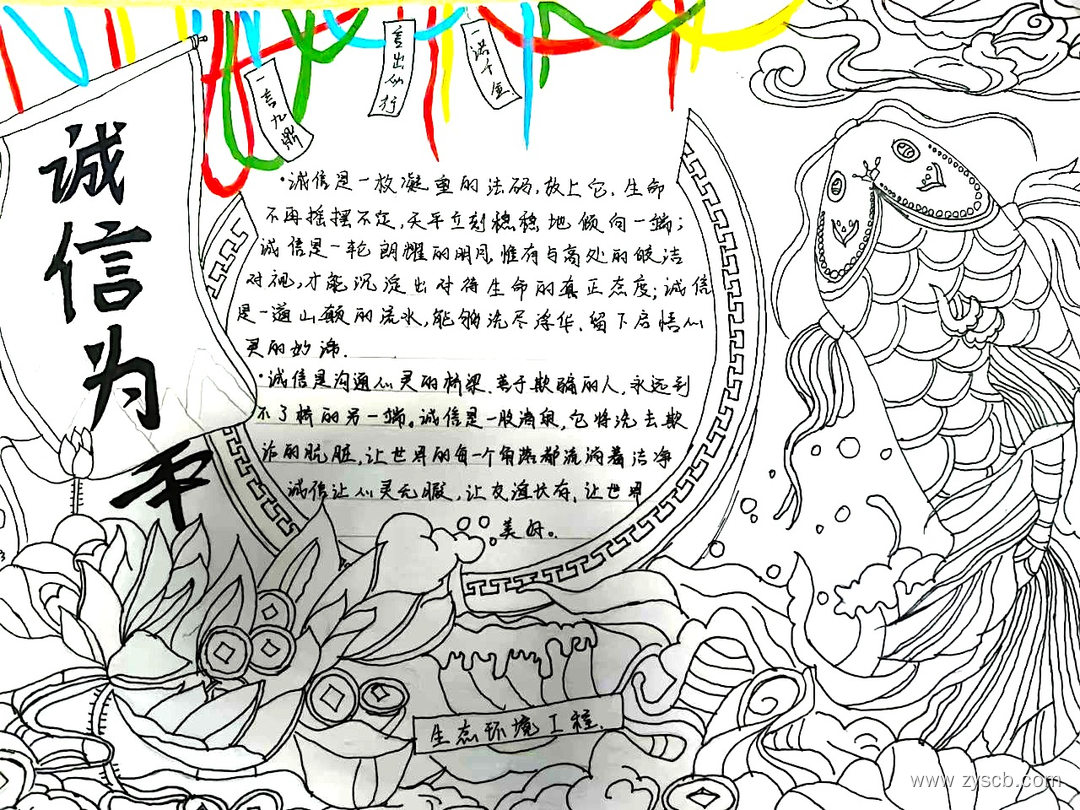 诚
信
为
本
一言九鼎
言出必行
一诺千金
·诚信是一枚凝重的法码,放上它,生命
不再摇摆不定,天平立刻稳稳地倾向一端;
诚信是一轮朗耀的明月,惟有与高处的皎洁
对视,才能沉淀出对待生命的真正态度;诚信
是一道山巅的流水,能够洗尽浮华,留下启悟心
灵的妙谛.
·诚信是沟通心灵的桥梁.善于欺骗的人,永远到
不了桥的另一端。诚信是一股清泉,它将洗去欺
诈的肮脏,让世界的每一个角落都流淌着洁净
诚信让心灵无瑕,让友谊状存,让世界
美好。
生态环境工程.
www.zyscb.com